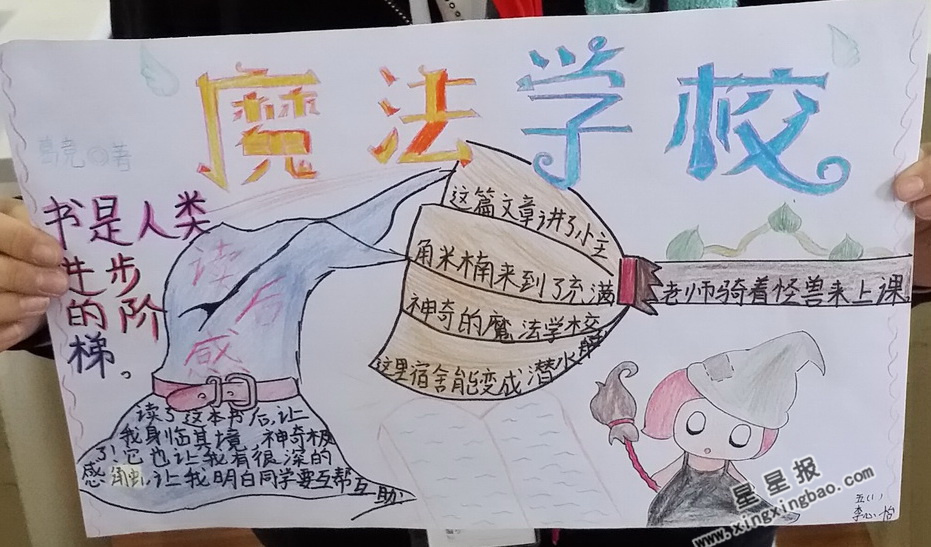 魔法学校
葛竞 著
书是人类
进步
的阶
梯。
读后感
读了这本书后,让
我身临其境,神奇极
了!它也让我有很深的
感触,让我明白同学要互帮互助
这篇文章讲了小主
角米楠来到了充满
神奇的魔法学校
这里宿舍能变成潜水艇
老师骑着怪兽来上课
五(1)
李心怡
星星报
www.xingxingbao.com